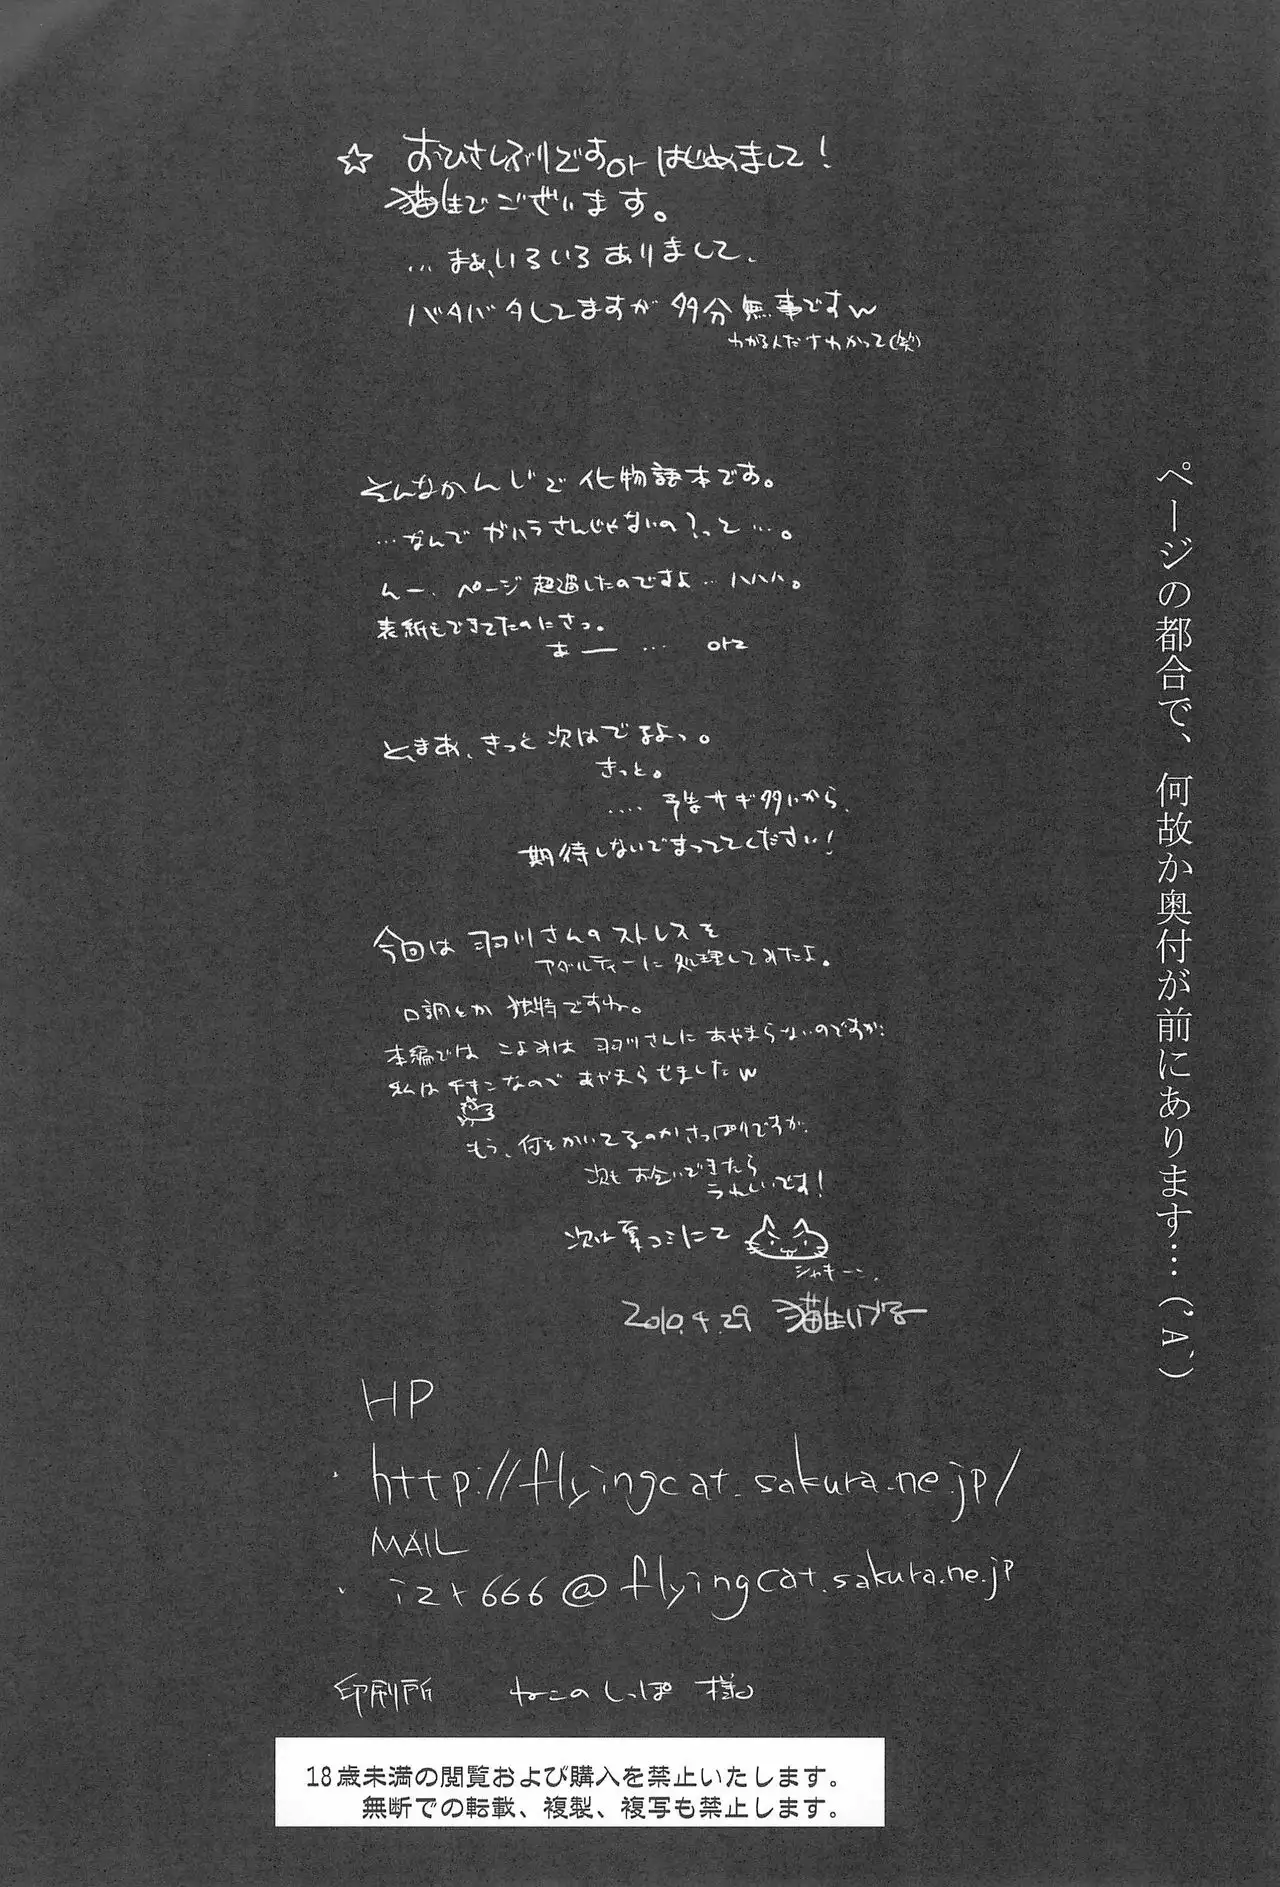 ページの都合で、何故か奥付が前にあります…(´A`)
☆ おひさしぶりですorはじめまして!
猫生でございます。
…まぁ、いろいろありまして、
バタバタしてますが多分無事ですw
わかる人だけわかって(笑)
そんなかんじで化物語本です。
…なんでガハラさんじゃないの?って…。
んー、ページ超過したのですよ…ハハハ。
表紙もできてたのにさっ。
あー … orz
とまあ、きっと次はでるよっ。
きっと。
....予告サギ多いから、
期待しないでまっててください!
今回は羽川さんのストレスを
アダルティーに処理してみたよ。
口調とか独特ですね。
本編ではこよみは羽川さんにあやまらないのですが、
私はチキンなのであやまらせましたw
もう、何をかいてるのかさっぱりですが、
次もお会いできたら
うれしいです!
次は夏コミにて
シャキーン、
2010.4.29 猫生いづる
HP
・http://flyingcat.sakura.ne.jp/
MAIL
・izr666@flyingcat.sakura.ne.jp
印刷所 ねこのしっぽ 様
18歳未満の閲覧および購入を禁止いたします。
無断での転載、複製、複写も禁止します。